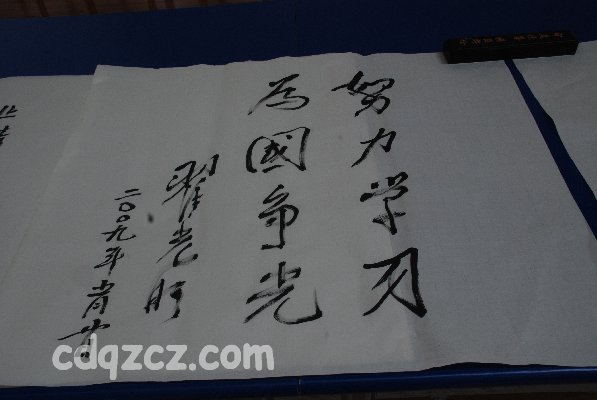 努力学习
為國争光
翟光明
二〇〇九年
cdqzcz.com